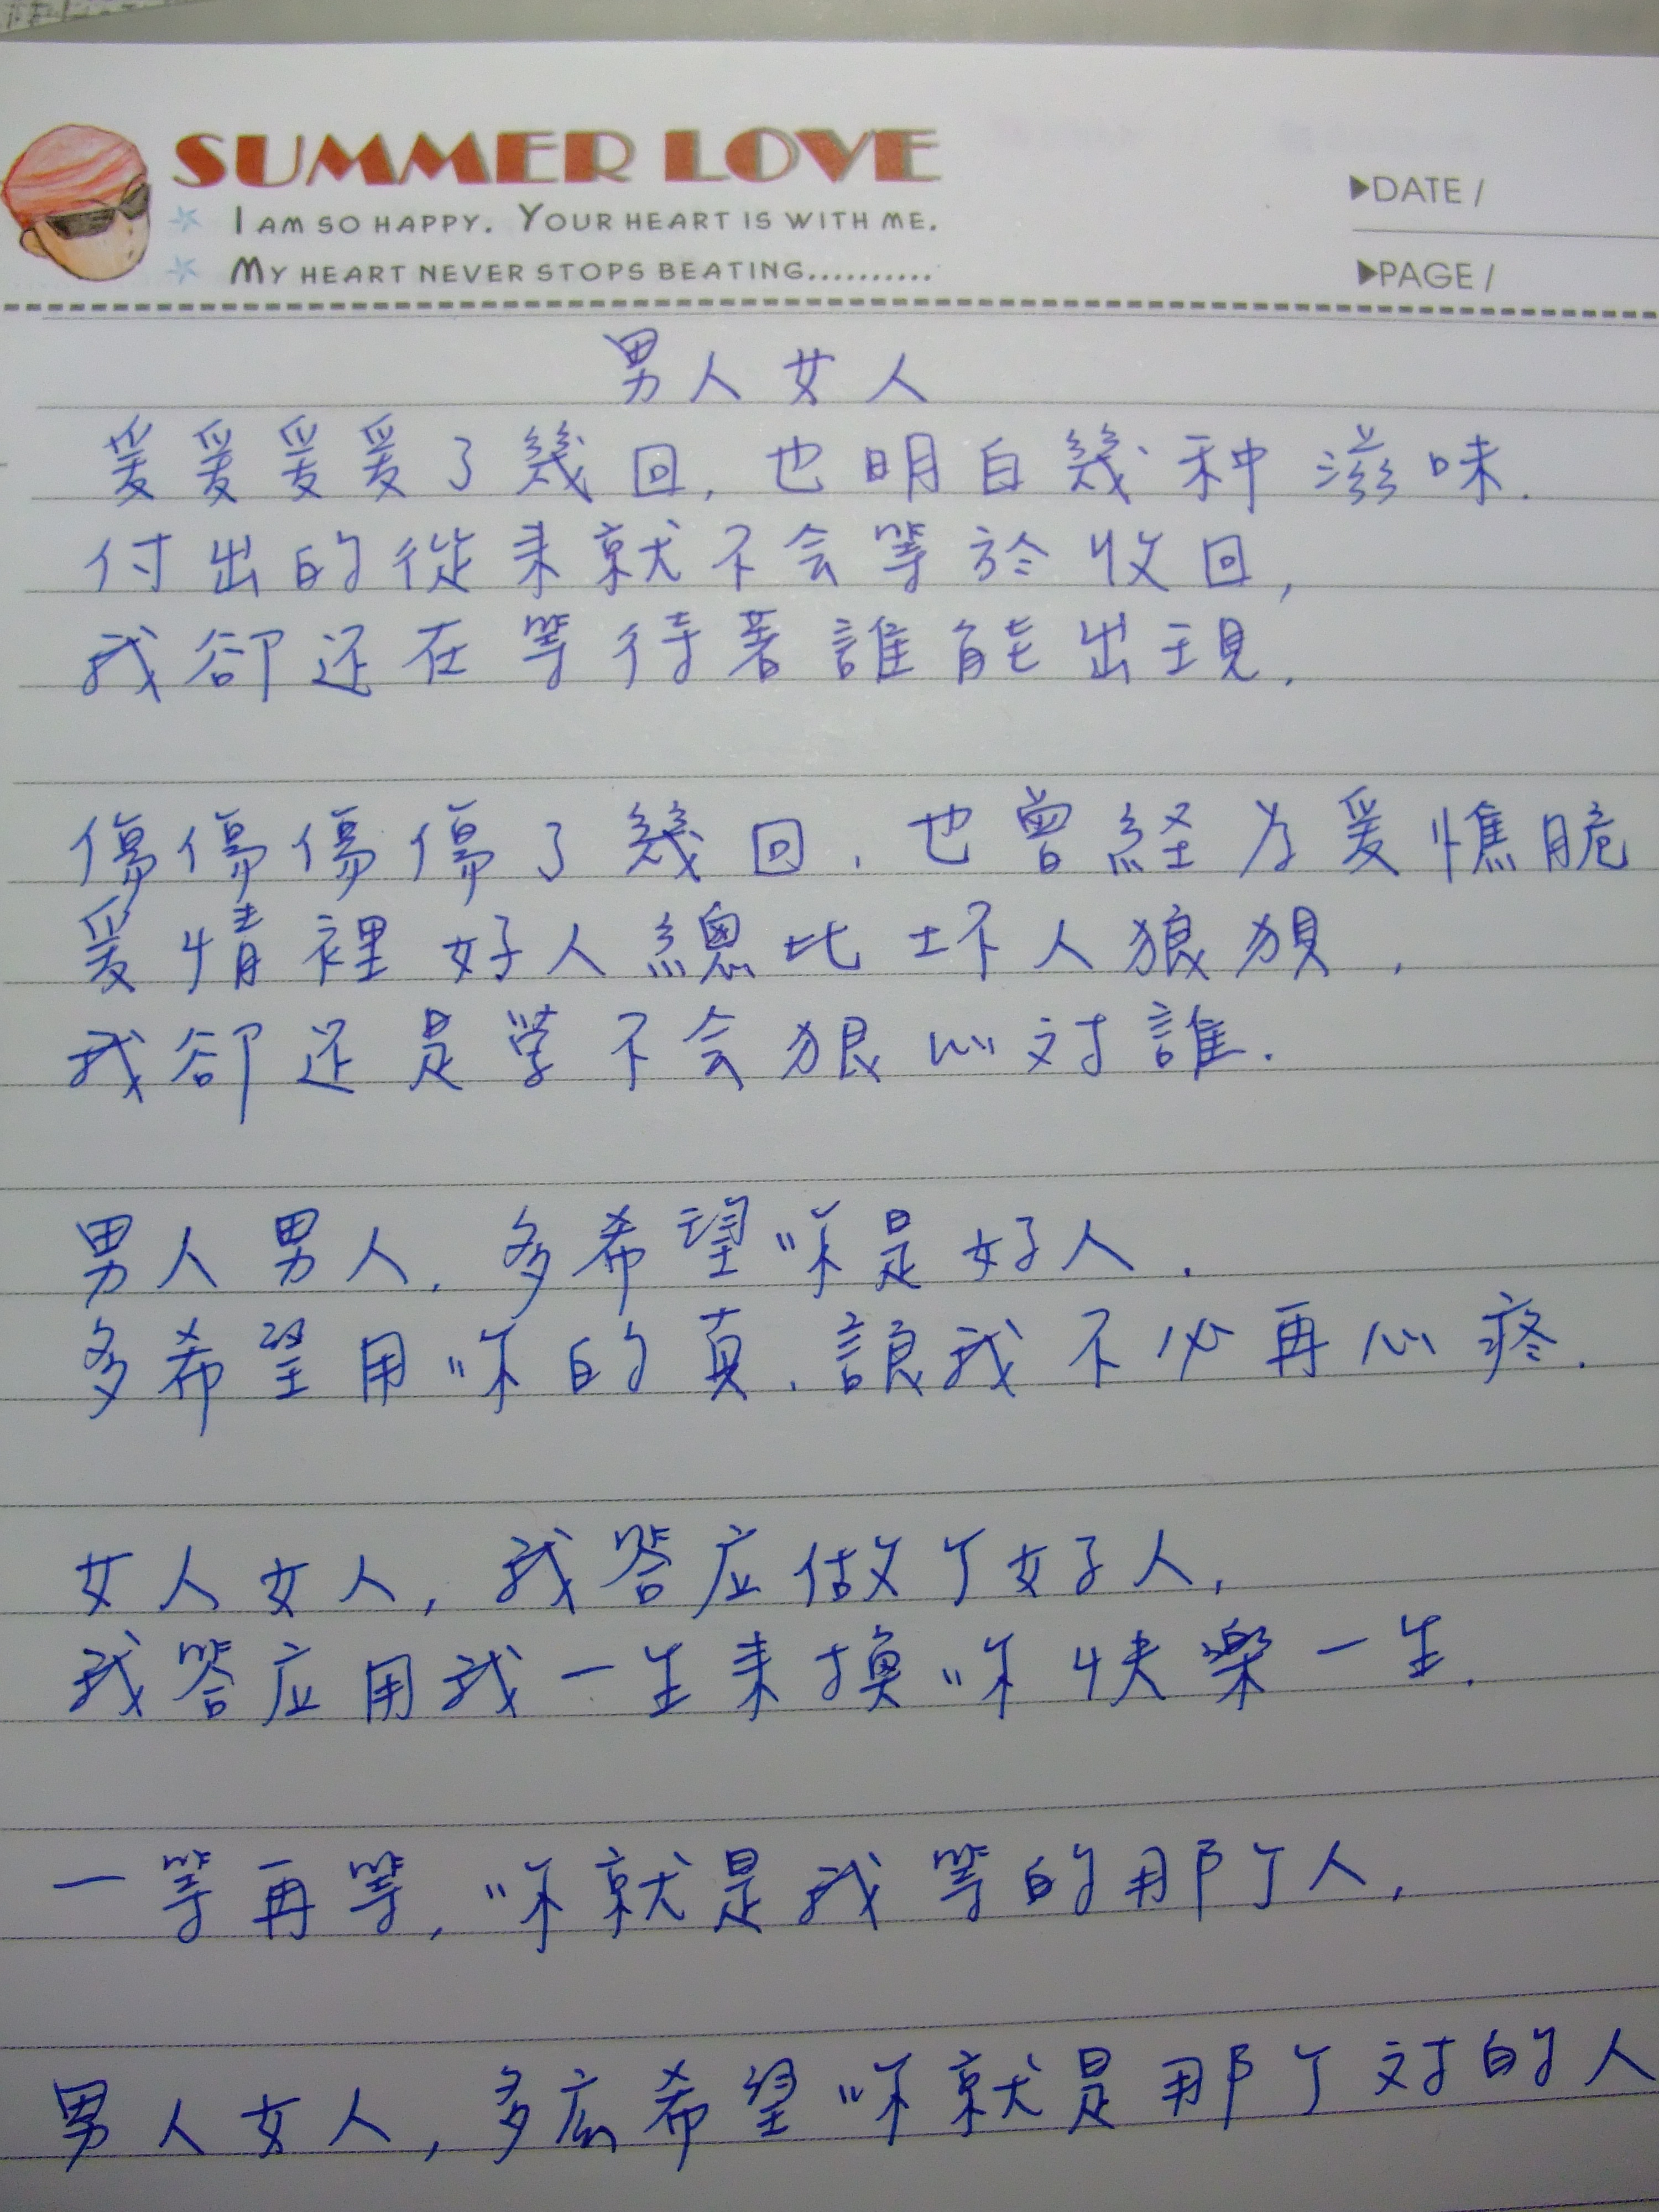 SUMMER LOVE
I AM SO HAPPY. YOUR HEART IS WITH ME.
MY HEART NEVER STOPS BEATING..........
▶DATE /
▶PAGE /
男人女人
爱爱爱爱了幾回, 也明白幾种滋味.
付出的從来就不会等於收回,
我卻还在等待著誰能出現.
傷傷傷傷了幾回, 也曾経为爱憔脆
爱情裡好人總比坏人狼狽,
我卻还是学不会狠心对誰.
男人男人, 多希望妳是好人.
多希望用妳的真, 讓我不必再心疼.
女人女人, 我答应做个好人,
我答应用我一生来換妳快樂一生.
一等再等, 妳就是我等的那个人,
男人女人, 多広希望妳就是那个对的人